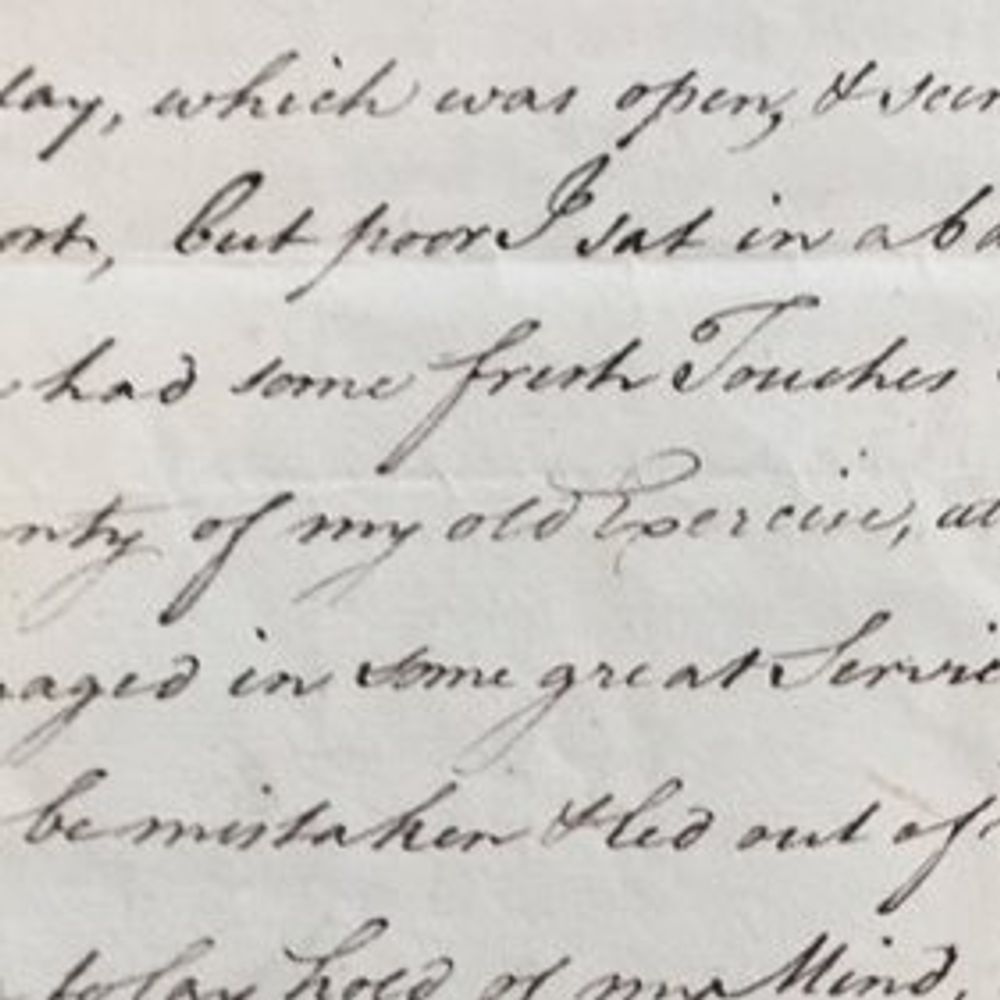 day, which was open, & seem
ort, but poor I sat in a ba
had some fresh Touches
nty of my old Exercise, at
ngaged in some great Servic
be mistaken & led out of
to lay hold of my Mind,